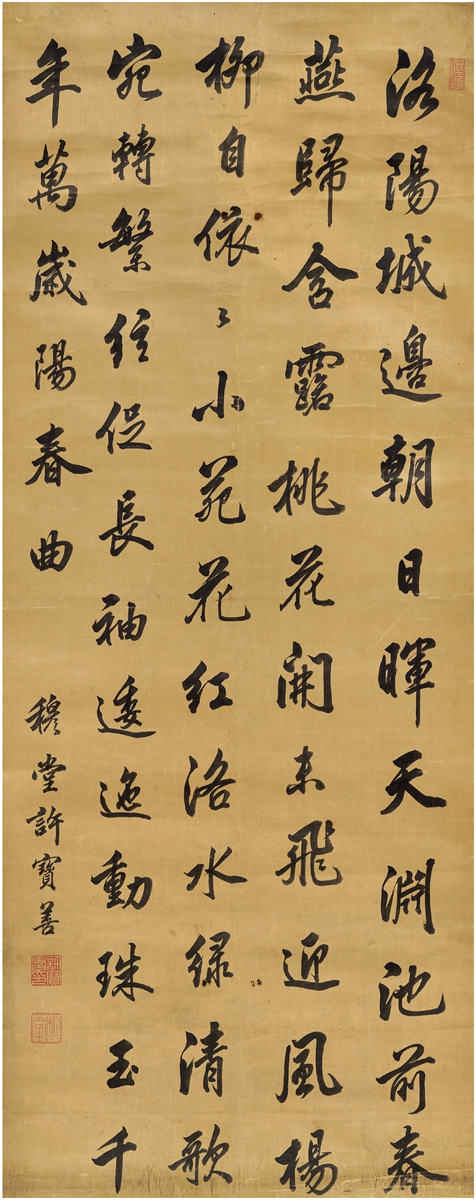 洛陽城邊朝日暉天淵池前春
燕歸含露桃花開未飛迎風楊
柳自依〻小苑花紅洛水綠清歌
宛轉繁絃促長袖逶迤動珠玉千
年萬歲陽春曲
穆堂許寶善